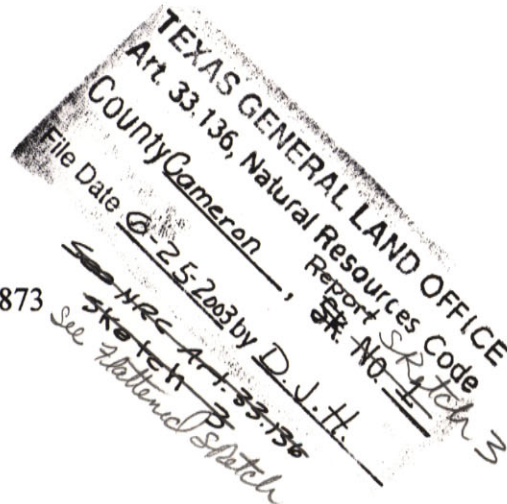 TEXAS GENERAL LAND OFFICE
Art. 33.136, Natural Resources Code
County Cameron, Report Sketch 3
SK. No. 1
File Date 6-25-2003 by D.J.H.
See NRC Art. 33.136
Sketch 3
873
See Flattened Sketch